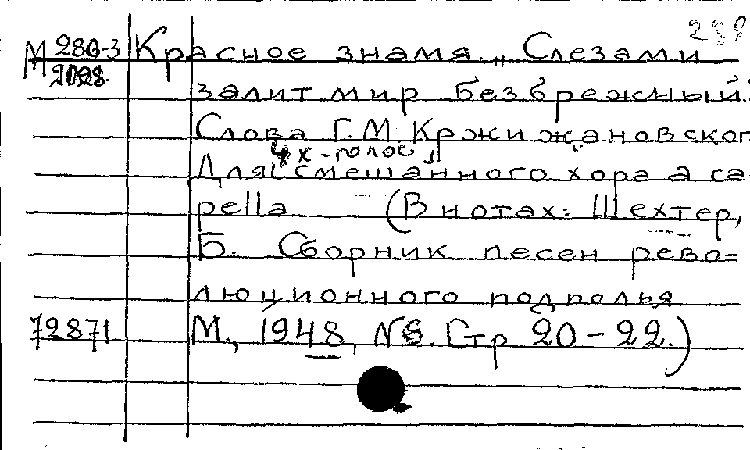 289
М 280-3 Красное знамя. „Слезами
залит мир безбрежный.
Слова Г.М. Кржижановского
4х-голос.
Для смешанного хора a ca-
pella (В нотах: Шехтер,
Б. Сборник песен рево=
люционного подполья
72871 М., 1948, №8. Стр 20-22.)